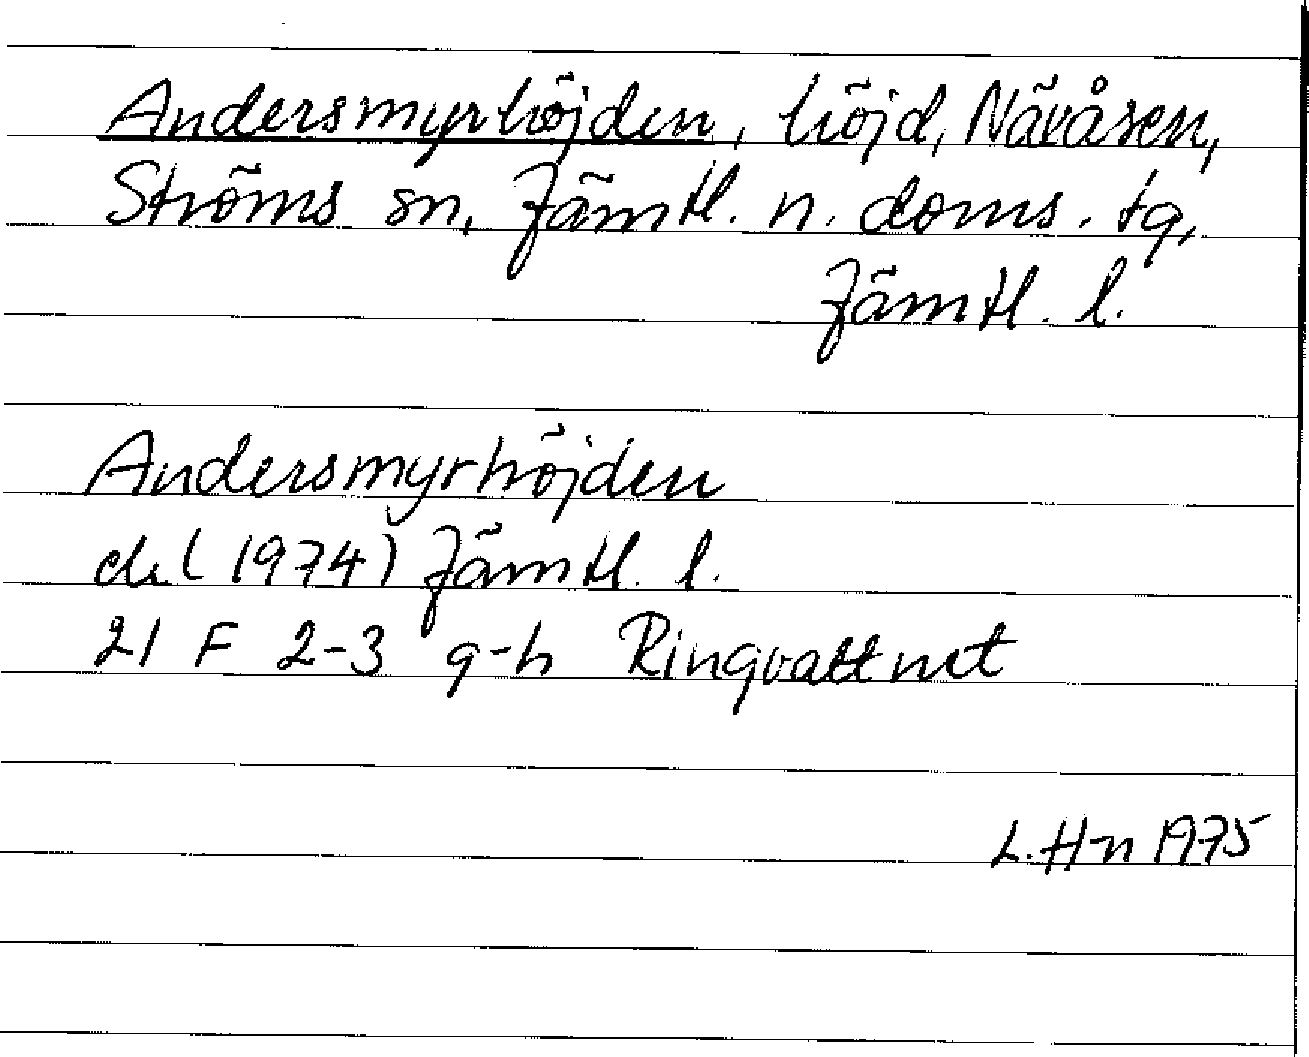 Andersmyrhöjden, höjd, Nävåsen,
Ströms sn, Jämtl. n. doms. tg,
Jämtl. l.
Andersmyrhöjden
ek (1974) Jämtl. l.
21 F 2-3 g-h Ringvattnet
L. H-n 1975